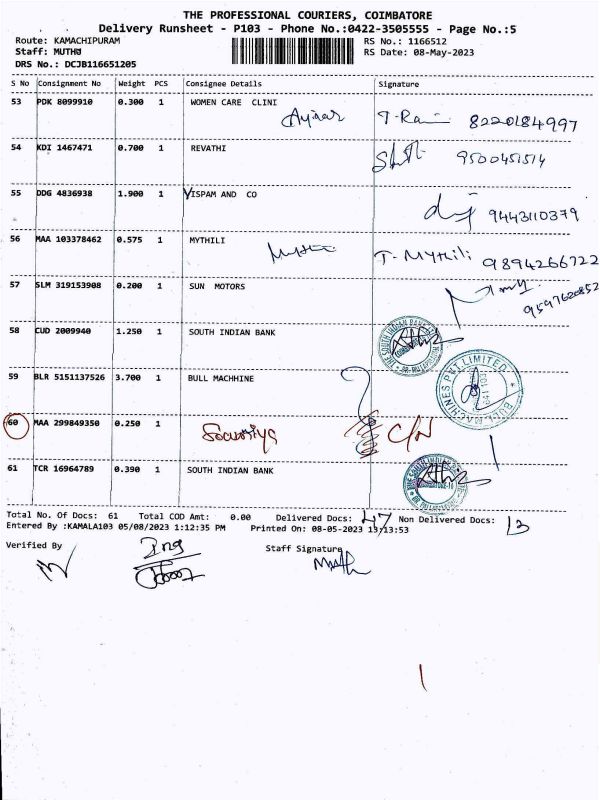 THE PROFESSIONAL COURIERS, COIMBATORE
Delivery Runsheet - P103 - Phone No.:0422-3505555 - Page No.:5
Route: KAMACHIPURAM RS No.: 1166512
Staff: MUTHU RS Date: 08-May-2023
DRS No.: DCJB116651205
S No Consignment No Weight PCS Consignee Details Signature
53 PDK 8099910 0.300 1 WOMEN CARE CLINI
8220184997
54 KDI 1467471 0.700 1 REVATHI
9500451514
55 DDG 4836938 1.900 1 VISPAM AND CO
9443110379
56 MAA 103378462 0.575 1 MYTHILI
T. Mythili 9894266722
57 SLM 319153908 0.200 1 SUN MOTORS
9597620852
58 CUD 2009940 1.250 1 SOUTH INDIAN BANK
59 BLR 5151137526 3.700 1 BULL MACHHINE
BULL MACHINES PVT LIMITED
60 MAA 299849350 0.250 1 Sowmiya C/N
61 TCR 16964789 0.390 1 SOUTH INDIAN BANK
Total No. Of Docs: 61 Total COD Amt: 0.00 Delivered Docs: 47 Non Delivered Docs: 13
Entered By :KAMALA103 05/08/2023 1:12:35 PM Printed On: 08-05-2023 13:13:53
Verified By Staff Signature